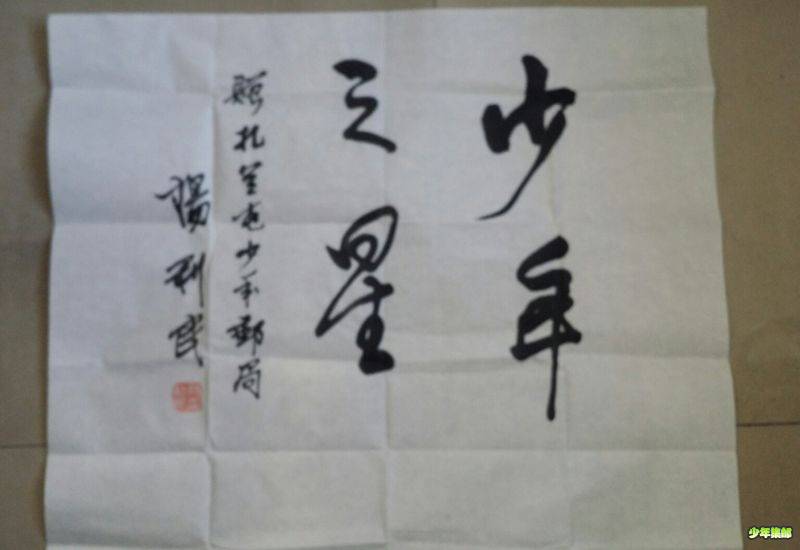 少年
之星
題扎兰屯少年郵局
楊利民
少年集邮